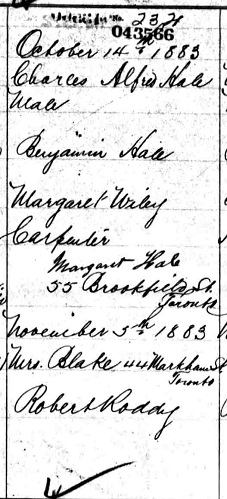 No. 23
043566
October 14th 1883
Charles Alfred Hale
Male
Benjamin Hale
Margaret Wiley
Carpenter
Margaret Hale
55 Brookfield St.
Toronto
November 5th 1883
Mrs. Blake 44 Markham St
Toronto
Robert Roddy